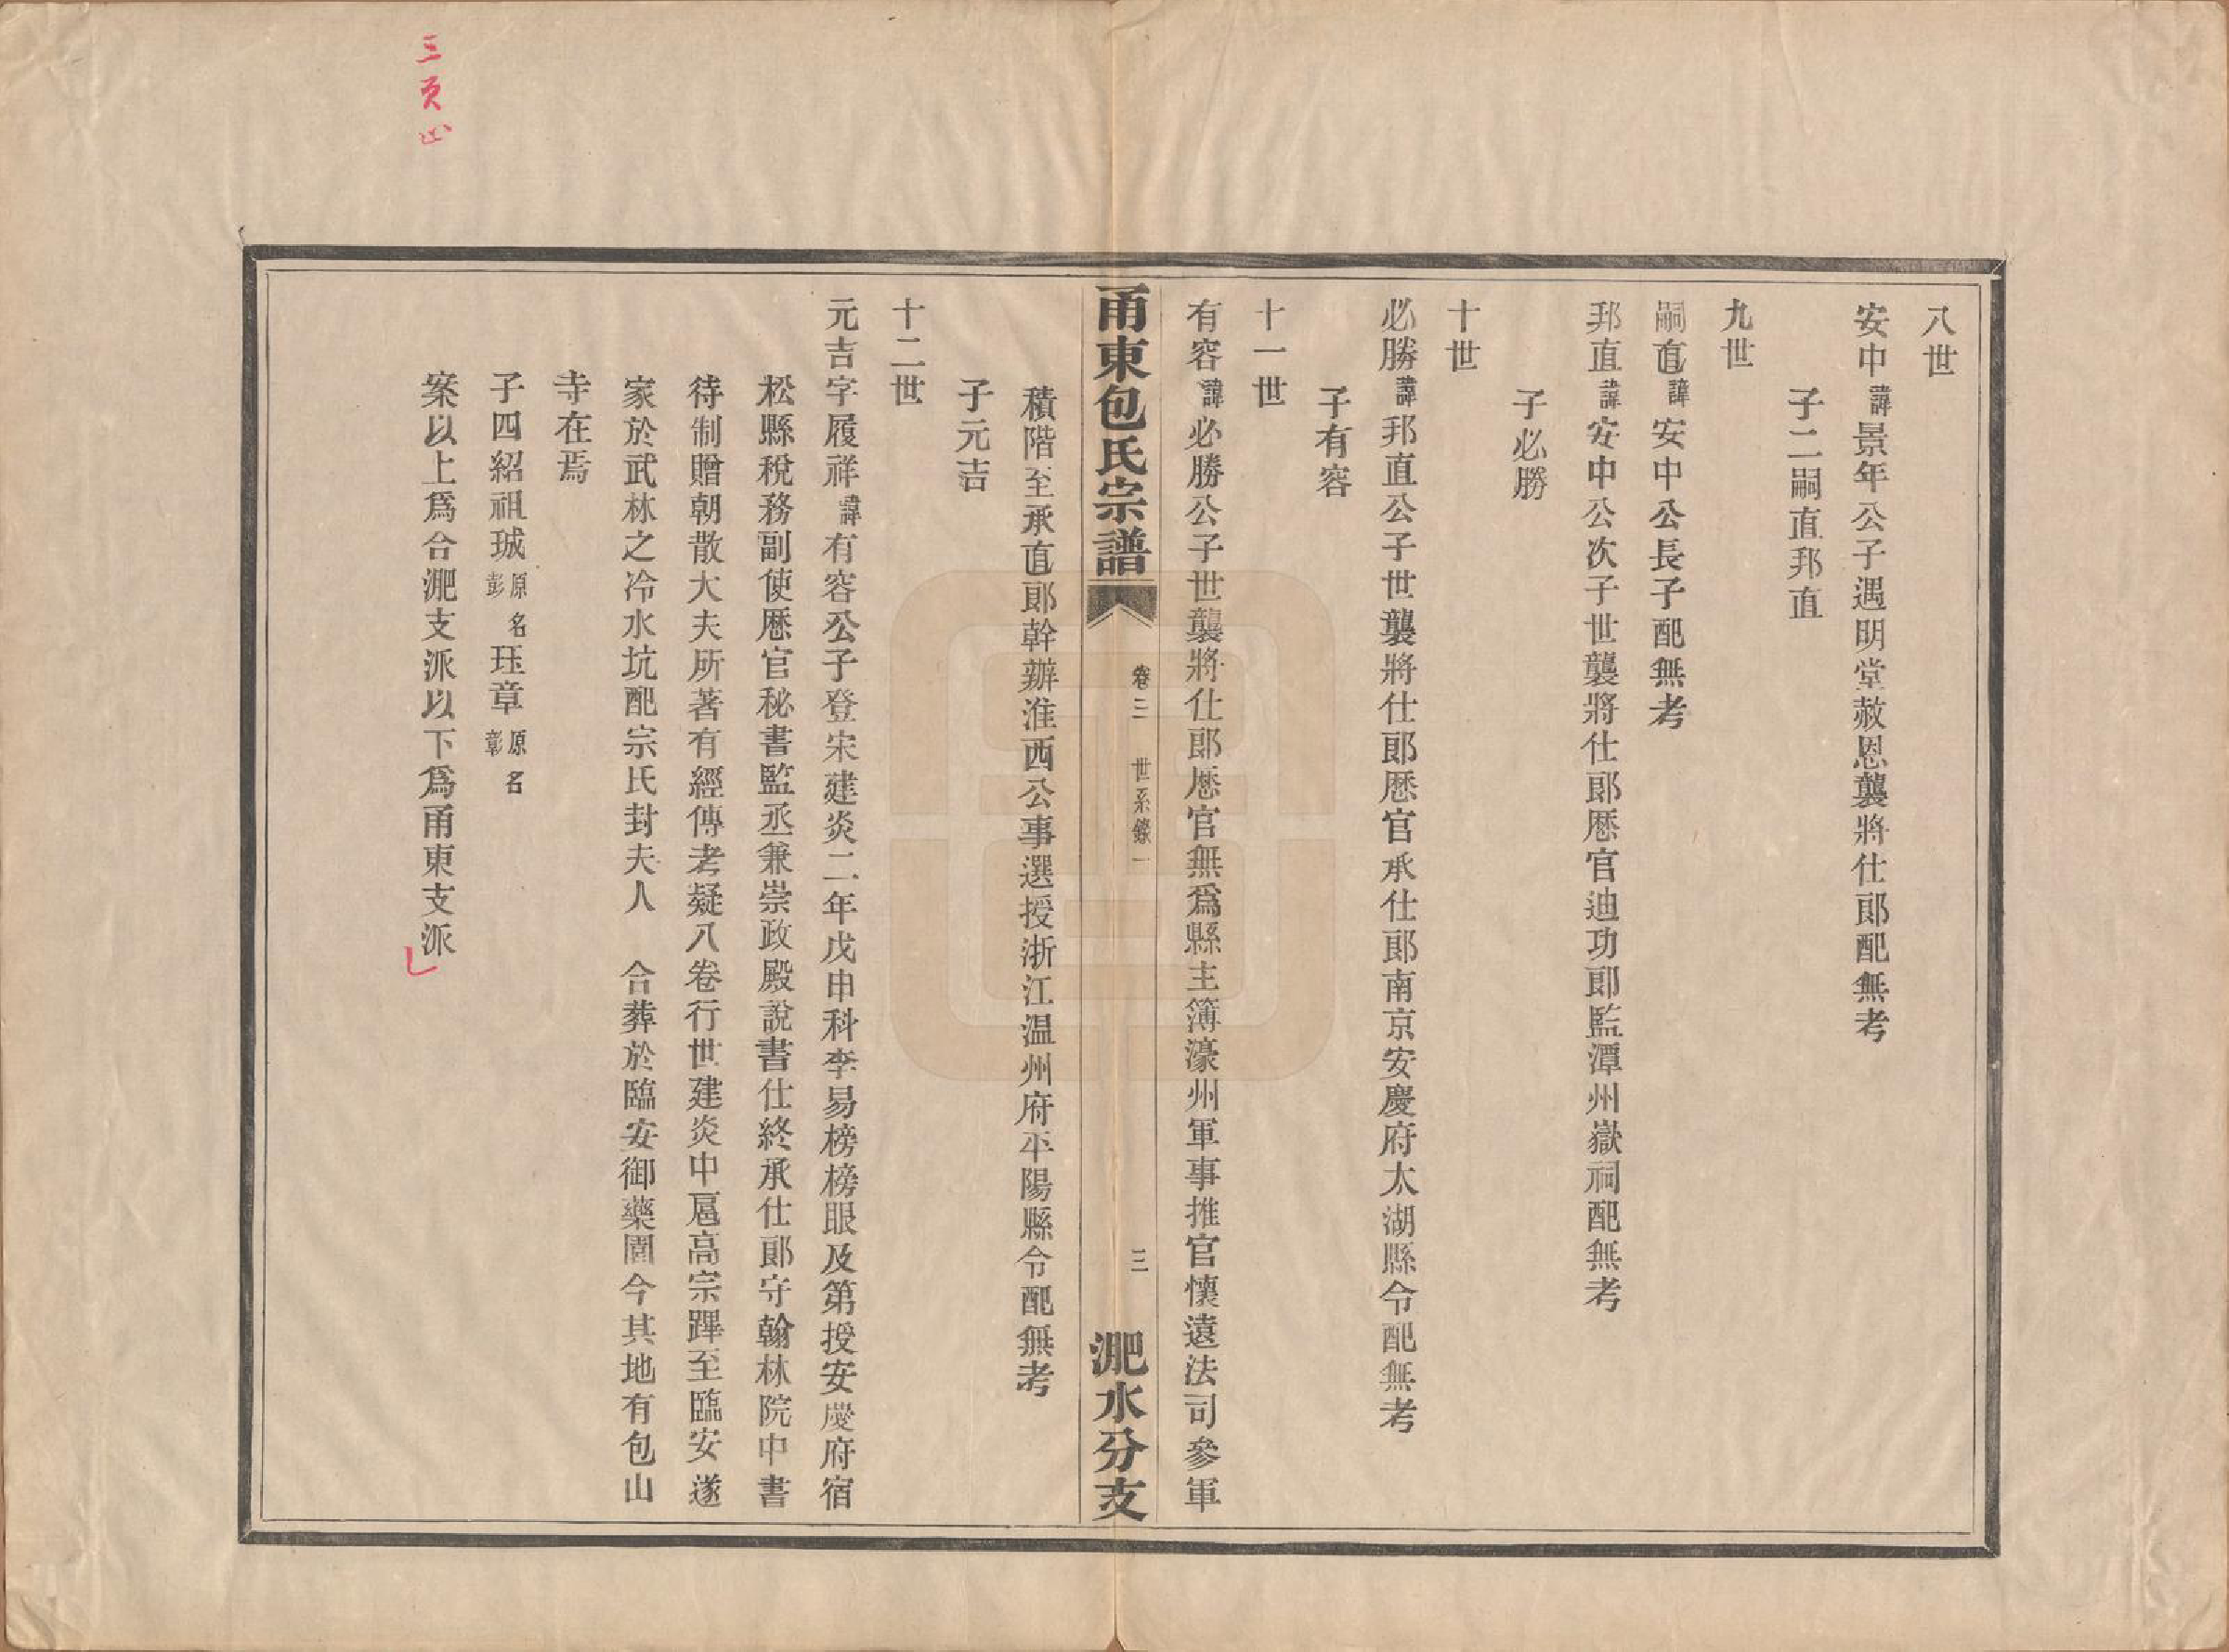 八世
安中諱景年公子遇明堂赦恩襲將仕郎配無考
子二嗣直邦直
九世
嗣直諱安中公長子配無考
邦直諱安中公次子世襲將仕郎歷官迪功郎監潭州嶽祠配無考
子必勝
十世
必勝諱邦直公子世襲將仕郎歷官承仕郎南京安慶府太湖縣令配無考
子有容
十一世
有容諱必勝公子世襲將仕郎歷官無爲縣主簿濠州軍事推官懷遠法司參軍
甬東包氏宗譜
卷三
世系錄一
三
淝水分支
積階至承直郎幹辦淮西公事選授浙江温州府平陽縣令配無考
子元吉
十二世
元吉字履祥諱有容公子登宋建炎二年戊申科李易榜榜眼及第授安慶府宿
松縣稅務副使歷官秘書監丞兼崇政殿說書仕終承仕郎守翰林院中書
待制贈朝散大夫所著有經傳考疑八卷行世建炎中扈高宗蹕至臨安遂
家於武林之冷水坑配宗氏封夫人　合葬於臨安御藥園今其地有包山
寺在焉
子四紹祖珹原名彭珏章原名彰
案以上爲合淝支派以下爲甬東支派
三页